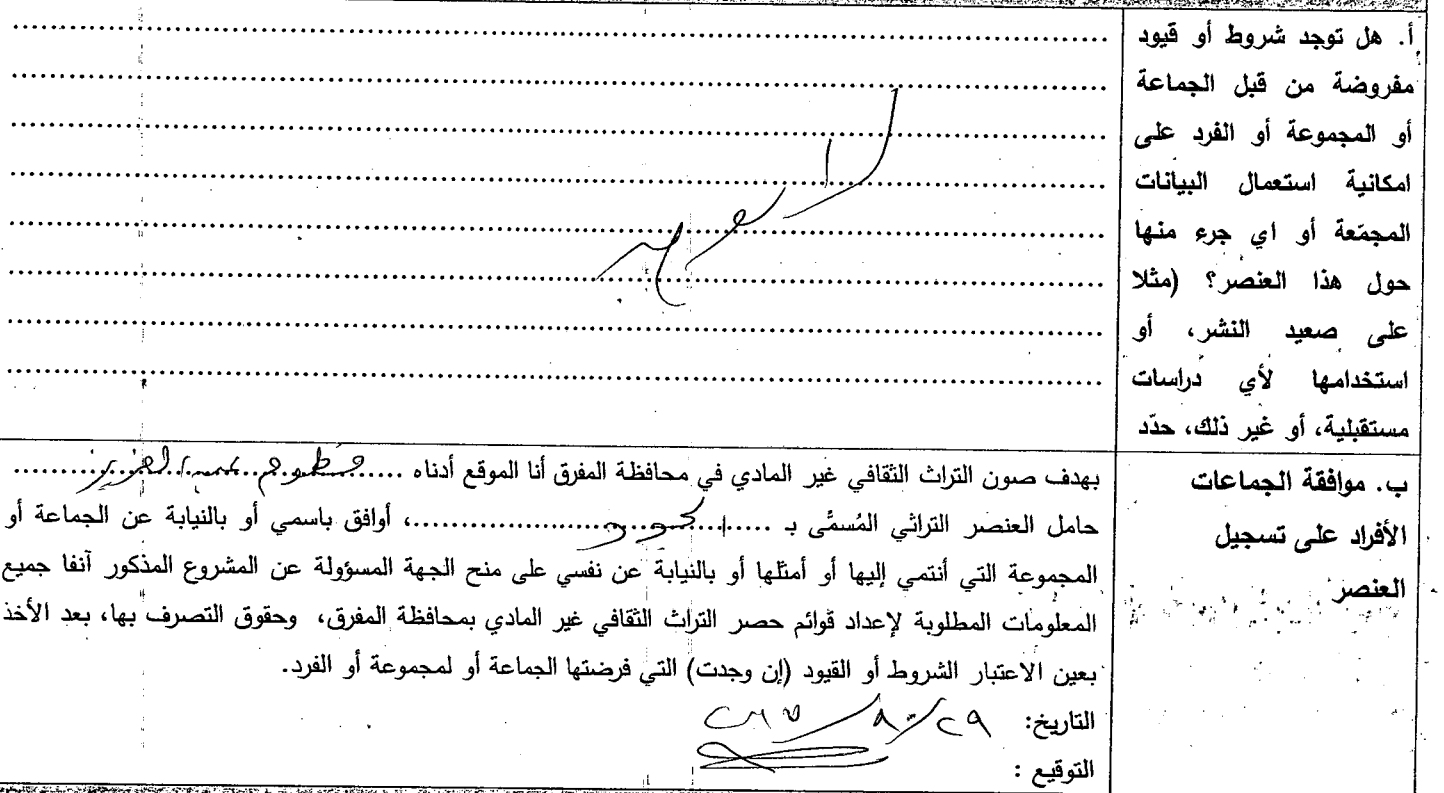 أ. هل توجد شروط أو قيود
مفروضة من قبل الجماعة
أو المجموعة أو الفرد على
امكانية استعمال البيانات
المجمّعة أو اي جرء منها
حول هذا العنصر؟ (مثلا
على صعيد النشر، أو
استخدامها لأي دراسات
مستقبلية، أو غير ذلك، حدّد
لا يوجد
ب. موافقة الجماعات
الأفراد على تسجيل
العنصر
بهدف صون التراث الثقافي غير المادي في محافظة المفرق أنا الموقع أدناه ..... عبد العزيز .....
حامل العنصر التراثي المُسمَّى بـ .....، أوافق باسمي أو بالنيابة عن الجماعة أو
المجموعة التي أنتمي إليها أو أمثلها أو بالنيابة عن نفسي على منح الجهة المسؤولة عن المشروع المذكور آنفا جميع
المعلومات المطلوبة لإعداد قوائم حصر التراث الثقافي غير المادي بمحافظة المفرق، وحقوق التصرف بها، بعد الأخذ
بعين الاعتبار الشروط أو القيود (إن وجدت) التي فرضتها الجماعة أو لمجموعة أو الفرد.
التاريخ: ٢٩/٨/
التوقيع :